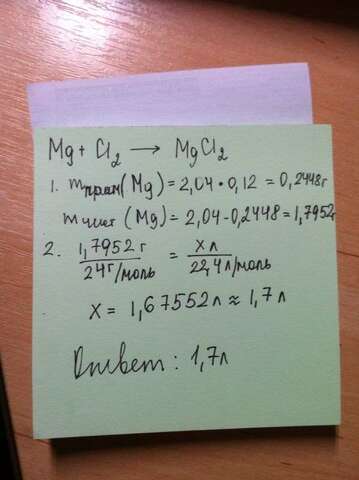 Mg + Cl₂ → MgCl₂
1. mприм(Mg) = 2,04 · 0,12 = 0,2448г
mчист(Mg) = 2,04 - 0,2448 = 1,7952г
2. 1,7952 г / 24 г/моль = x л / 22,4 л/моль
x = 1,67552 л ≈ 1,7 л
Ответ: 1,7 л